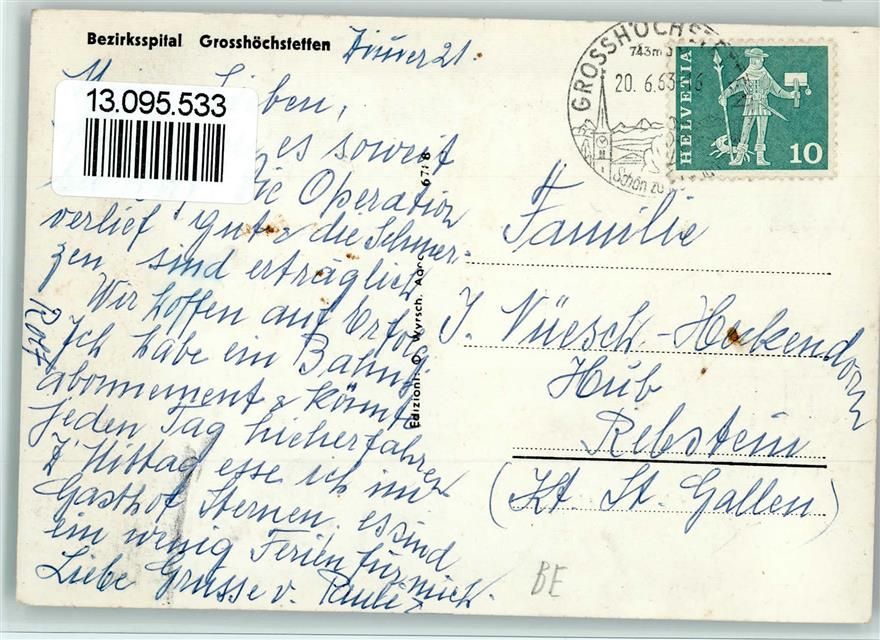 Bezirksspital Grosshöchstetten
Zimmer 21.
Meine Lieben,
es soweit
Die Operation
verlief gut & die Schmer-
zen sind erträglich.
Wir hoffen auf Erfolg
Ich habe ein Bahn-
abonnement & könnte
jeden Tag hieherfahren
Z'Mittag esse ich im
Gasthof Sternen, es sind
ein wenig Ferien für mich.
Liebe Grüsse v. Pauli
Rolf
13.095.533
6718
Edizioni: O. Wyrsch,
GROSSHÖCHSTE
743m
20. 6.63
Schön zu
HELVETIA
10
Familie
J. Nüesch-Heckendorn
Hub
Rebstein
(Kt St. Gallen)
BE